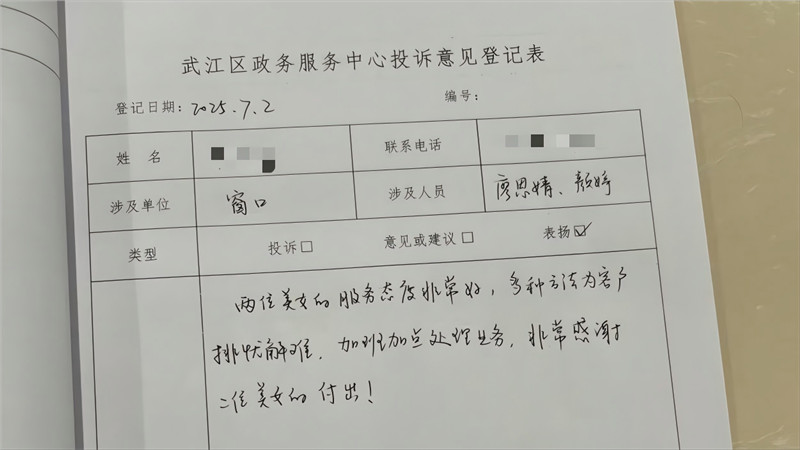 武江区政务服务中心投诉意见登记表
登记日期：2025.7.2 编号：
姓 名 联系电话
涉及单位 窗口 涉及人员 廖思婧、颜婷
类型 投诉□ 意见或建议□ 表扬☑
两位美女的服务态度非常好，多种方法为客户
排忧解难，加班加点处理业务，非常感谢
二位美女的付出！